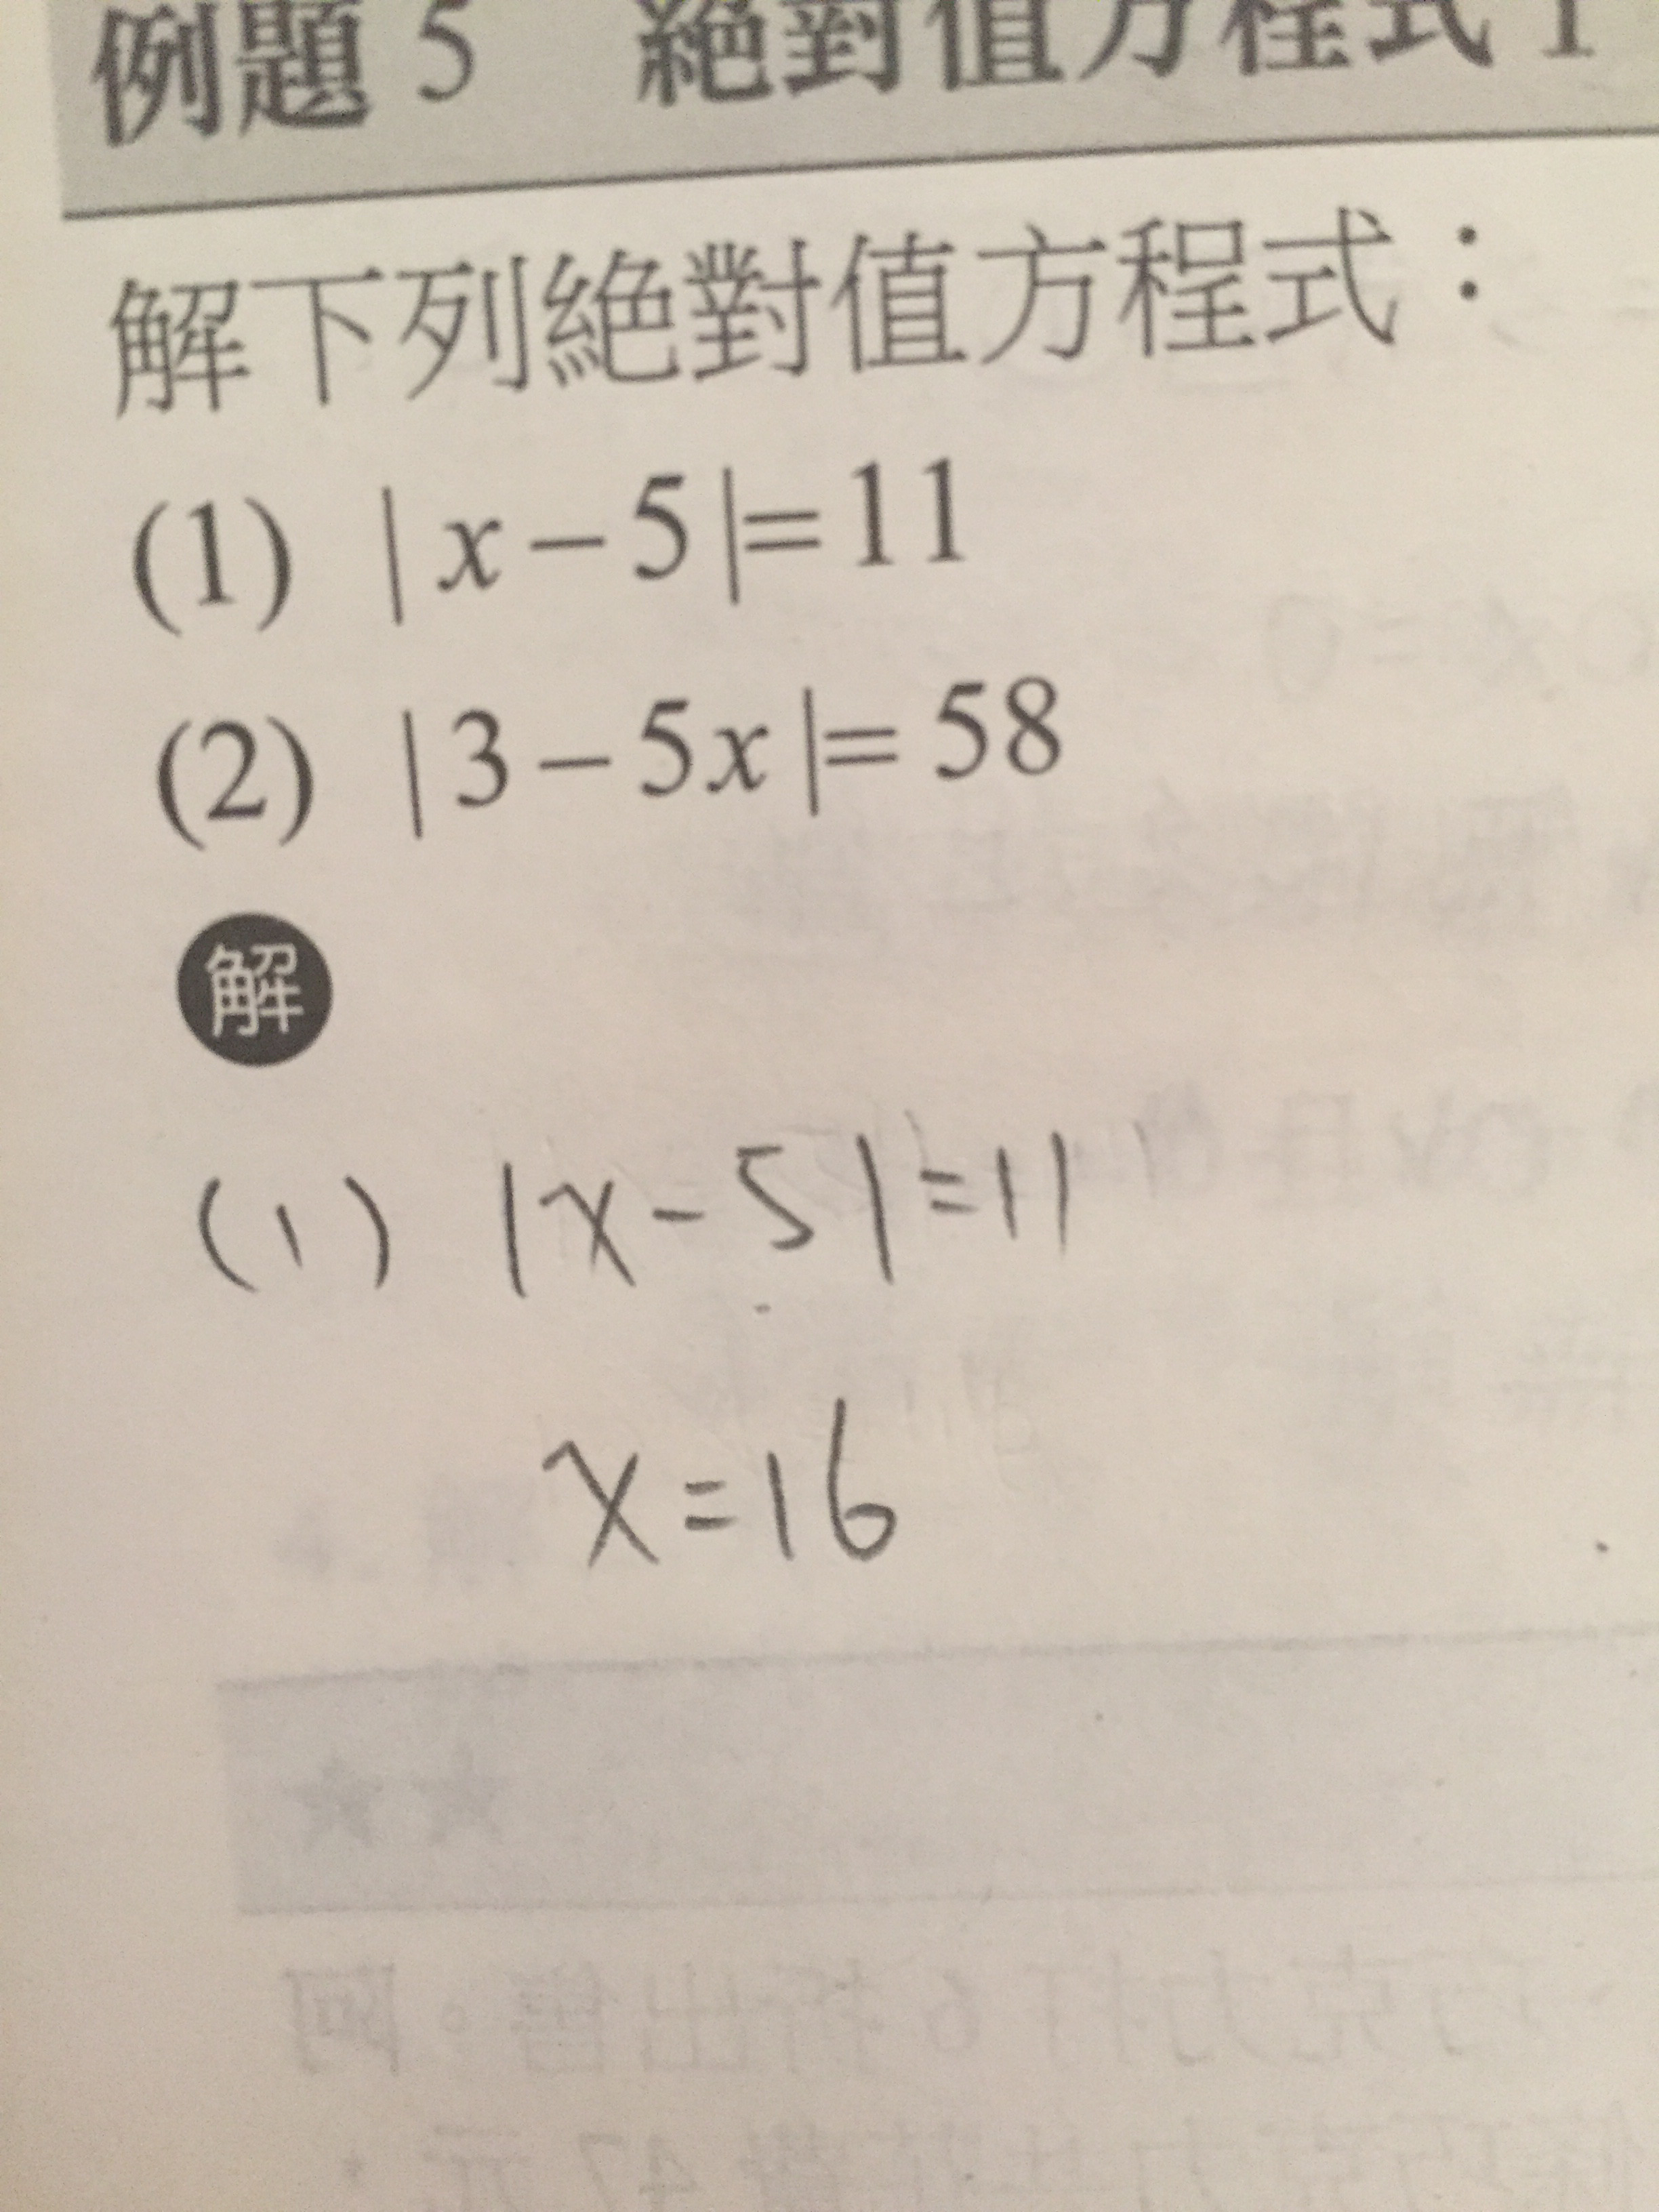 例題 5 絕對值方程式 1
解下列絕對值方程式：
(1) | x − 5 |= 11
(2) | 3 − 5x |= 58
解
(1) |x - 5| = 11
x = 16